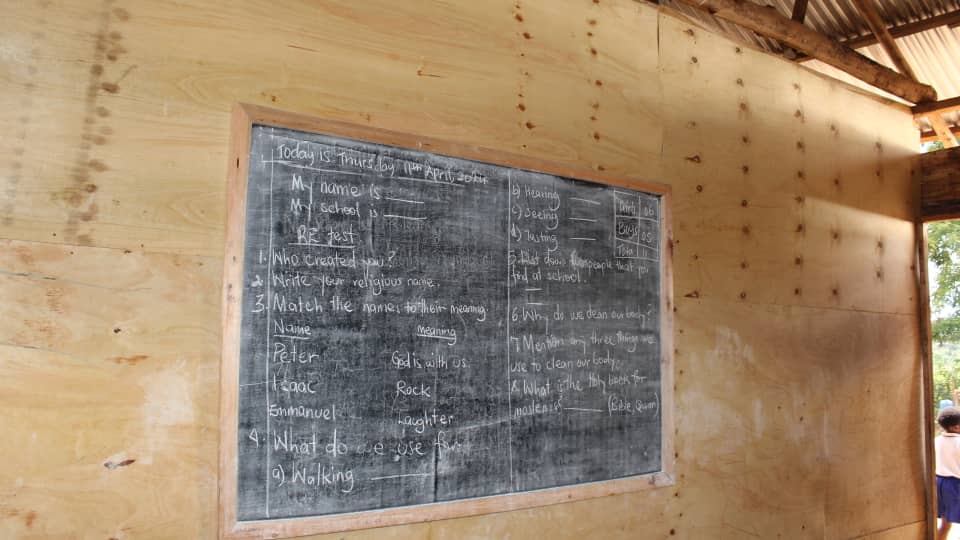 Today is Thursday 11th April, 2024
My name is ____
My school is ____
RE test
1. Who created you?
2. Write your religious name.
3. Match the names to their meaning.
Name meaning
Peter God is with us
Isaac Rock
Emmanuel Laughter
4. What do we use for
a) Walking ____
b) Hearing ____
c) Seeing ____
d) Tasting ____
5. list down people that you
find at school.
6. Why do we clean our body?
7. Mention any three things we
use to clean our body.
8. What is the Holy book for
moslems? ____ (Bible, Quran)
Girls 06
Boys 05
Total